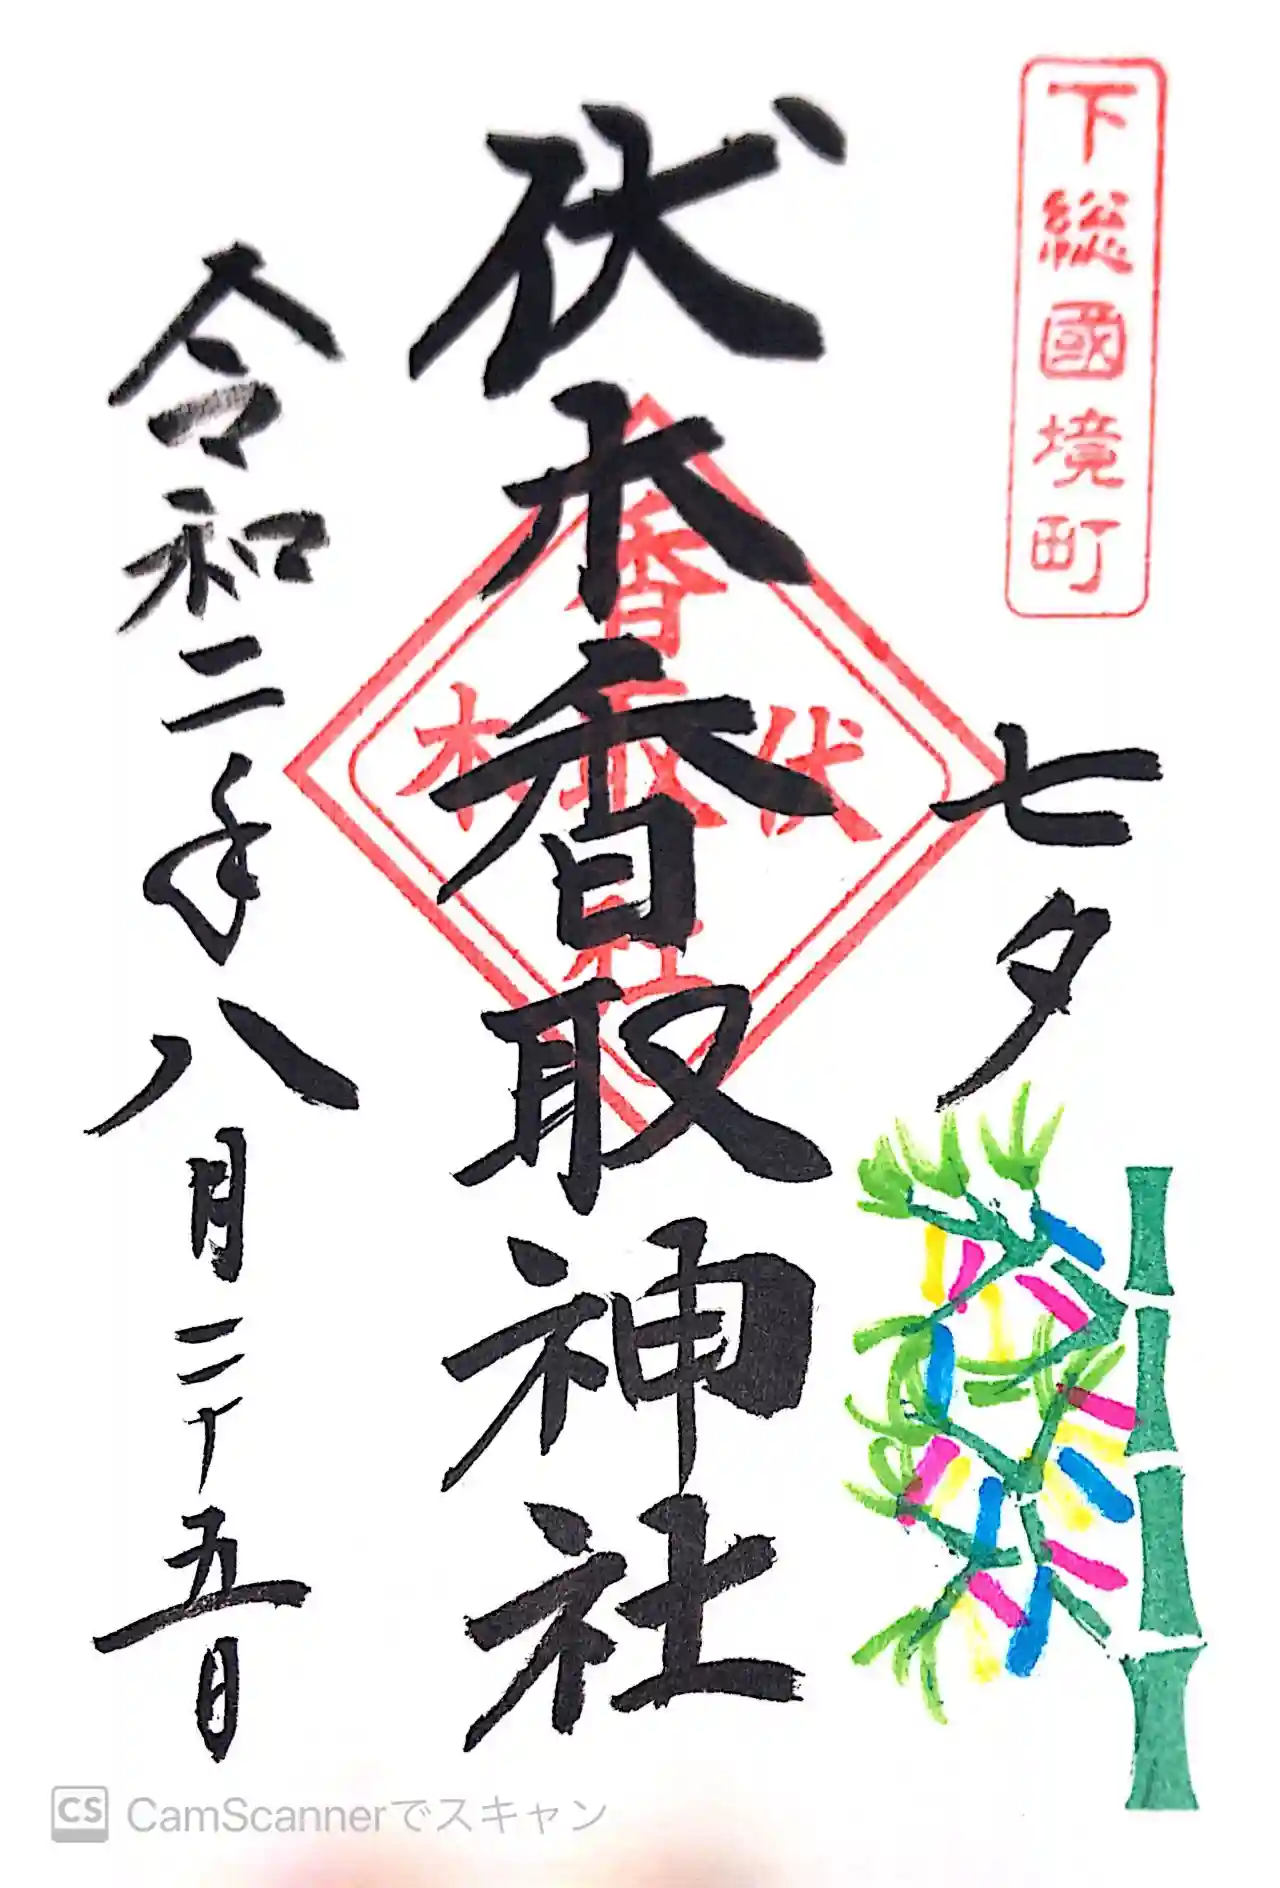 下総國境町
七夕
伏木香取神社
香取社
伏木
令和二年八月二十五日
CS CamScannerでスキャン